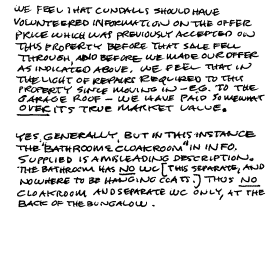 WE FEEL THAT CUNDALLS SHOULD HAVE
VOLUNTEERED INFORMATION ON THE OFFER
PRICE WHICH WAS PREVIOUSLY ACCEPTED ON
THIS PROPERTY BEFORE THAT SALE FELL
THROUGH, AND BEFORE WE MADE OUR OFFER
AS INDICATED ABOVE. WE FEEL THAT IN
THE LIGHT OF REPAIRS REQUIRED TO THIS
PROPERTY SINCE MOVING IN - E.G. TO THE
GARAGE ROOF - WE HAVE PAID SOMEWHAT
OVER ITS TRUE MARKET VALUE.
YES, GENERALLY, BUT IN THIS INSTANCE
THE "BATHROOM & CLOAKROOM" IN INFO.
SUPPLIED IS A MISLEADING DESCRIPTION.
THE BATHROOM HAS NO WC [THIS SEPARATE, AND
NOWHERE TO BE HANGING COATS.] THUS NO
CLOAKROOM AND SEPARATE WC ONLY, AT THE
BACK OF THE BUNGALOW.